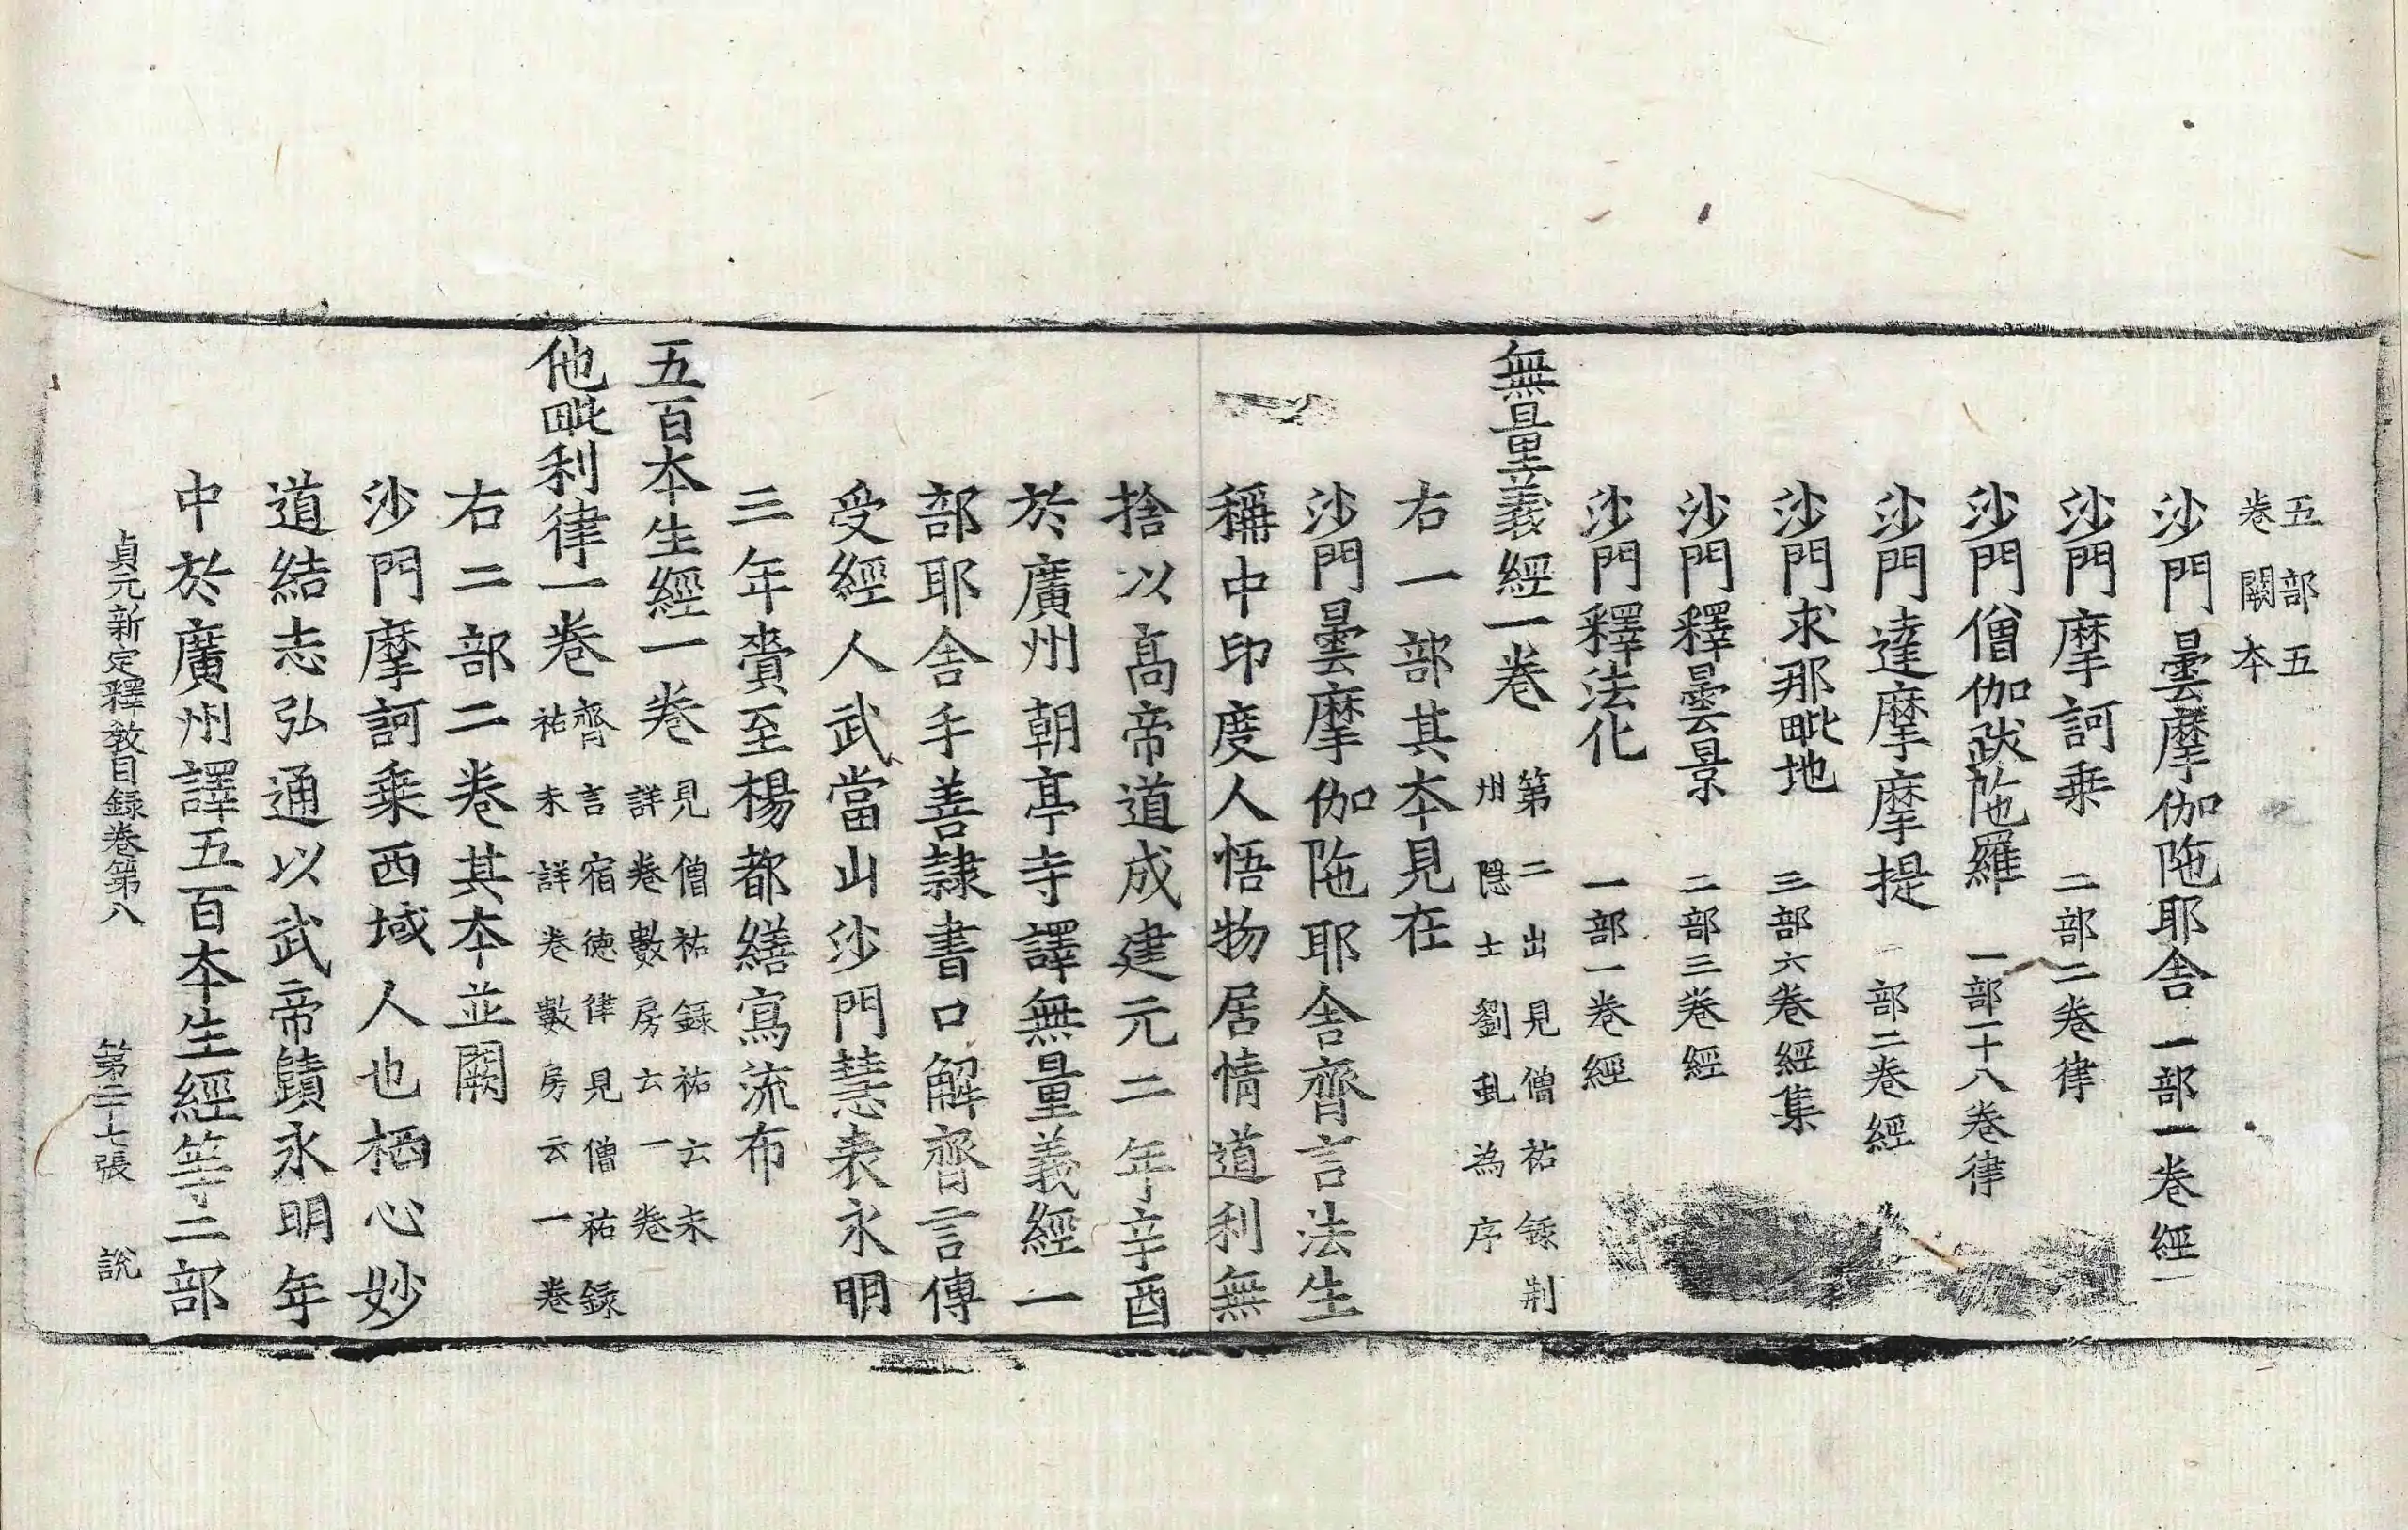 五部五
卷闕本
沙門曇摩伽陁耶舍一部一卷經
沙門摩訶乗二部二卷律
沙門僧伽跋陁羅一部一十八卷律
沙門達摩摩提一部二卷經
沙門求那毗地三部六卷經集
沙門釋曇景二部三卷經
沙門釋法化一部一卷經
無量義經一卷第二出見僧祐録荆
州隠士劉虬為序
右一部其本見在
沙門曇摩伽陁耶舍齊言法生
稱中印度人悟物居情道利無
捨以髙帝道成建元二年辛酉
於廣州朝亭寺譯無量義經一
部耶舍手善隷書口解齊言傳
受經人武當山沙門慧表永明
三年賷至楊都繕寫流布
五百本生經一卷見僧祐録祐云未
詳卷數房云一卷
他毗利律一卷齊言宿徳律見僧祐録
祐未詳卷數房云一卷
右二部二卷其本並闕
沙門摩訶乗西域人也栖心妙
道結志弘通以武帝賾永明年
中於廣州譯五百本生經等二部
貞元新定釋教目録卷第八 第二十七張 說